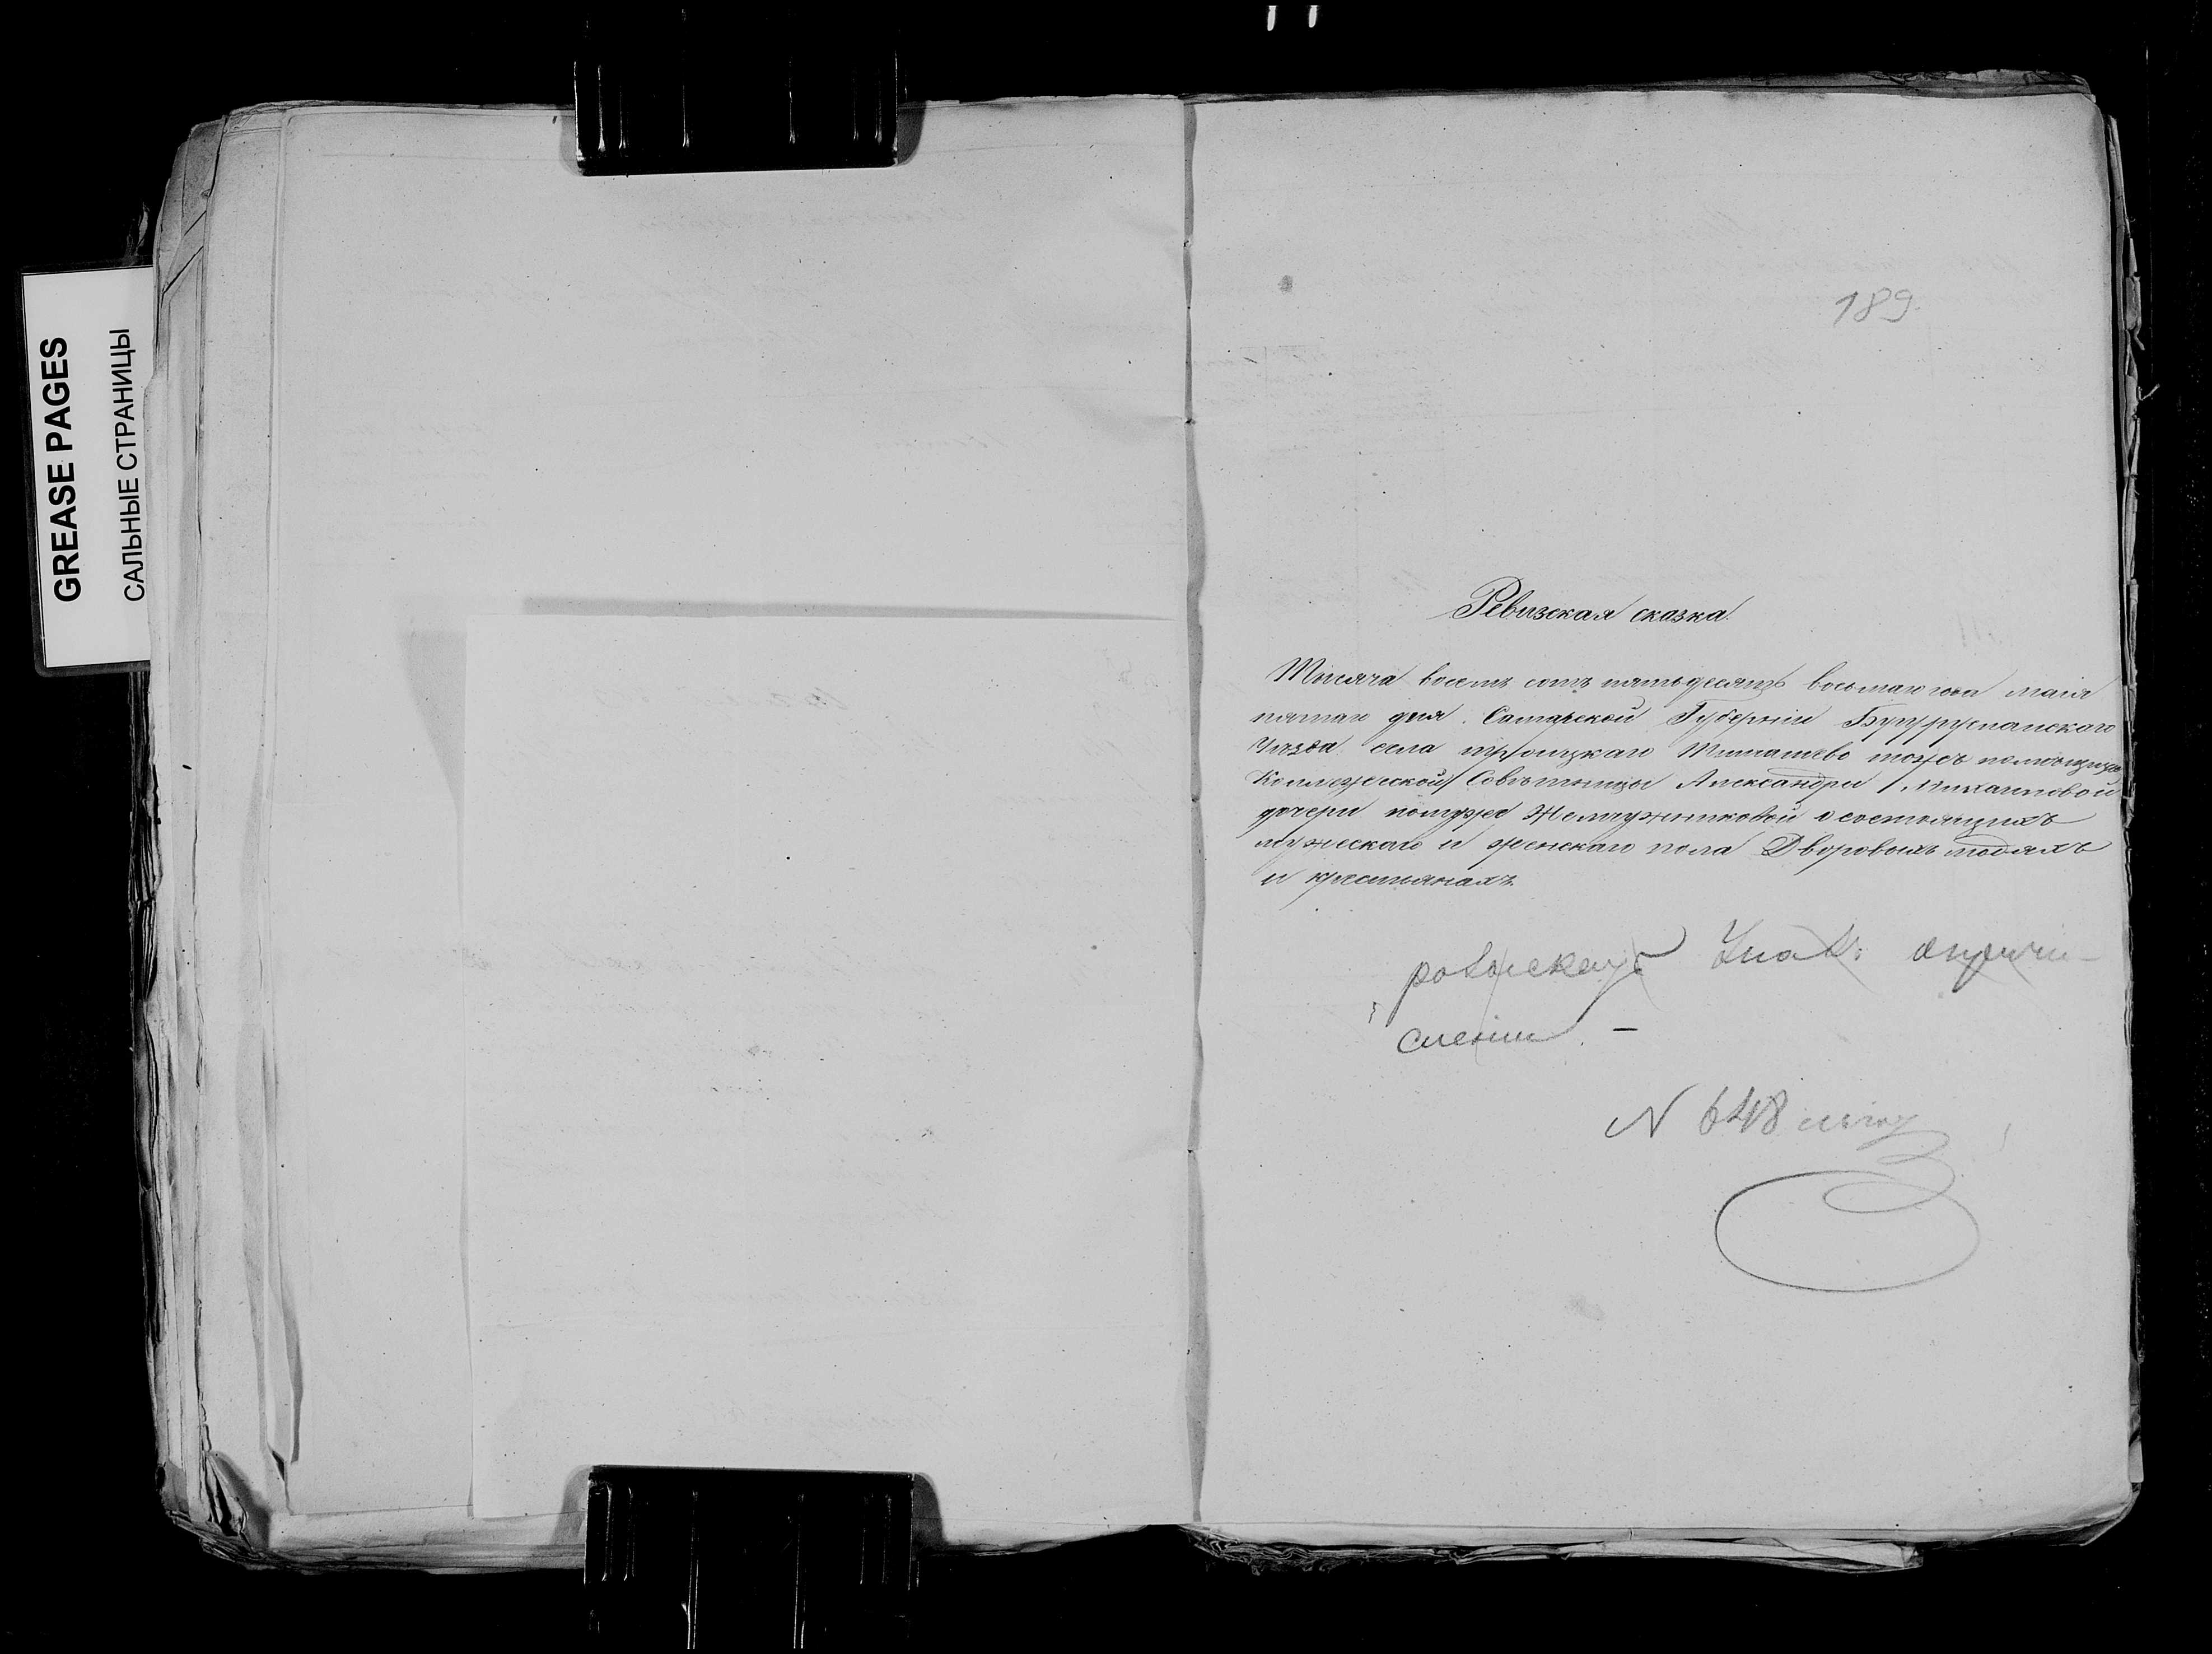 GREASE PAGES
САЛЬНЫЕ СТРАНИЦЫ
189.
Ревизская сказка.
Тысяча восемь сотъ пятьдесятъ восьмаго года маія
пятаго дня. Самарской Губерніи Бугурусланскаго
Уѣзда села троицкаго Тимашево тожъ помѣщицы
Коллежской Совѣтницы Александры Михайловой
дочери по мужѣ Жемчужниковой о состоящихъ
мужескаго и женскаго пола Дворовыхъ людяхъ
и крестьянахъ.
сленіи. –
N 648